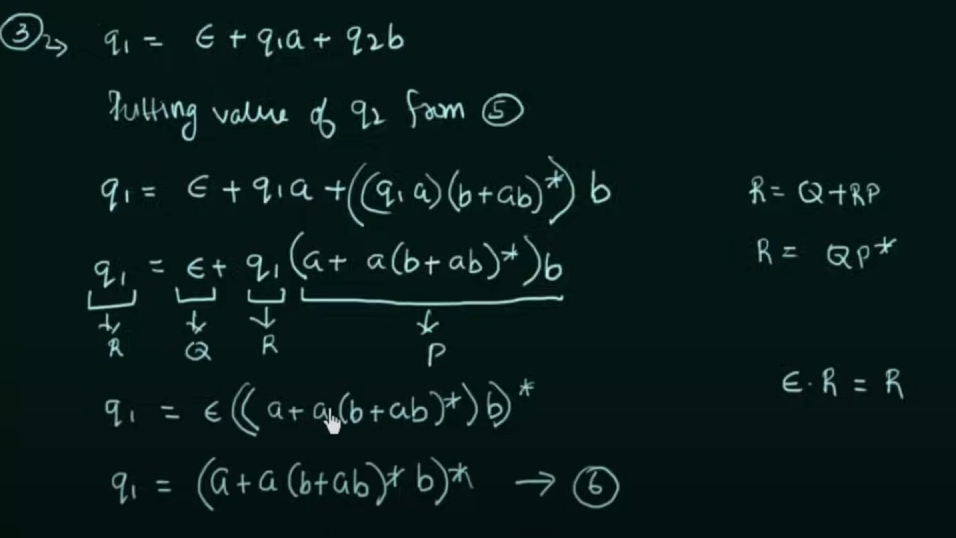 ③ → q₁ = ϵ + q₁a + q₂b
Putting value of q₂ from ⑤
q₁ = ϵ + q₁a + ((q₁a)(b+ab)*) b
q₁ = ϵ + q₁ (a + a(b+ab)*) b
R Q R P
q₁ = ϵ ((a + a(b+ab)*) b)*
q₁ = (a + a(b+ab)* b)* → ⑥
R = Q + RP
R = QP*
ϵ · R = R